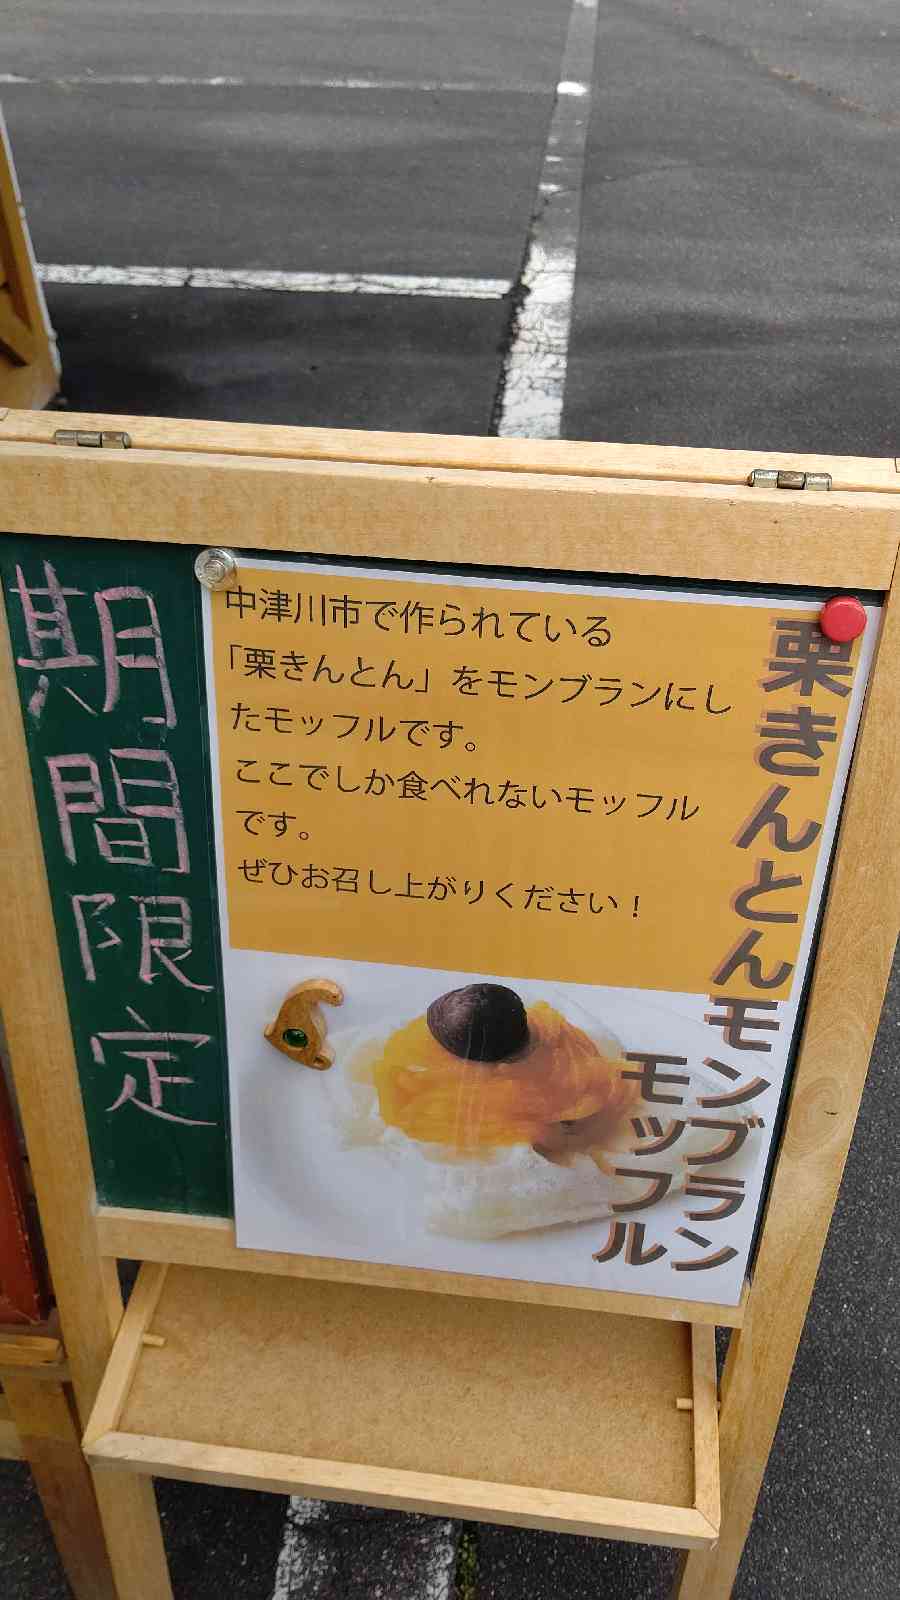 期間限定
栗きんとんモンブラン
モッフル
中津川市で作られている
「栗きんとん」をモンブランにし
たモッフルです。
ここでしか食べれないモッフル
です。
ぜひお召し上がりください！